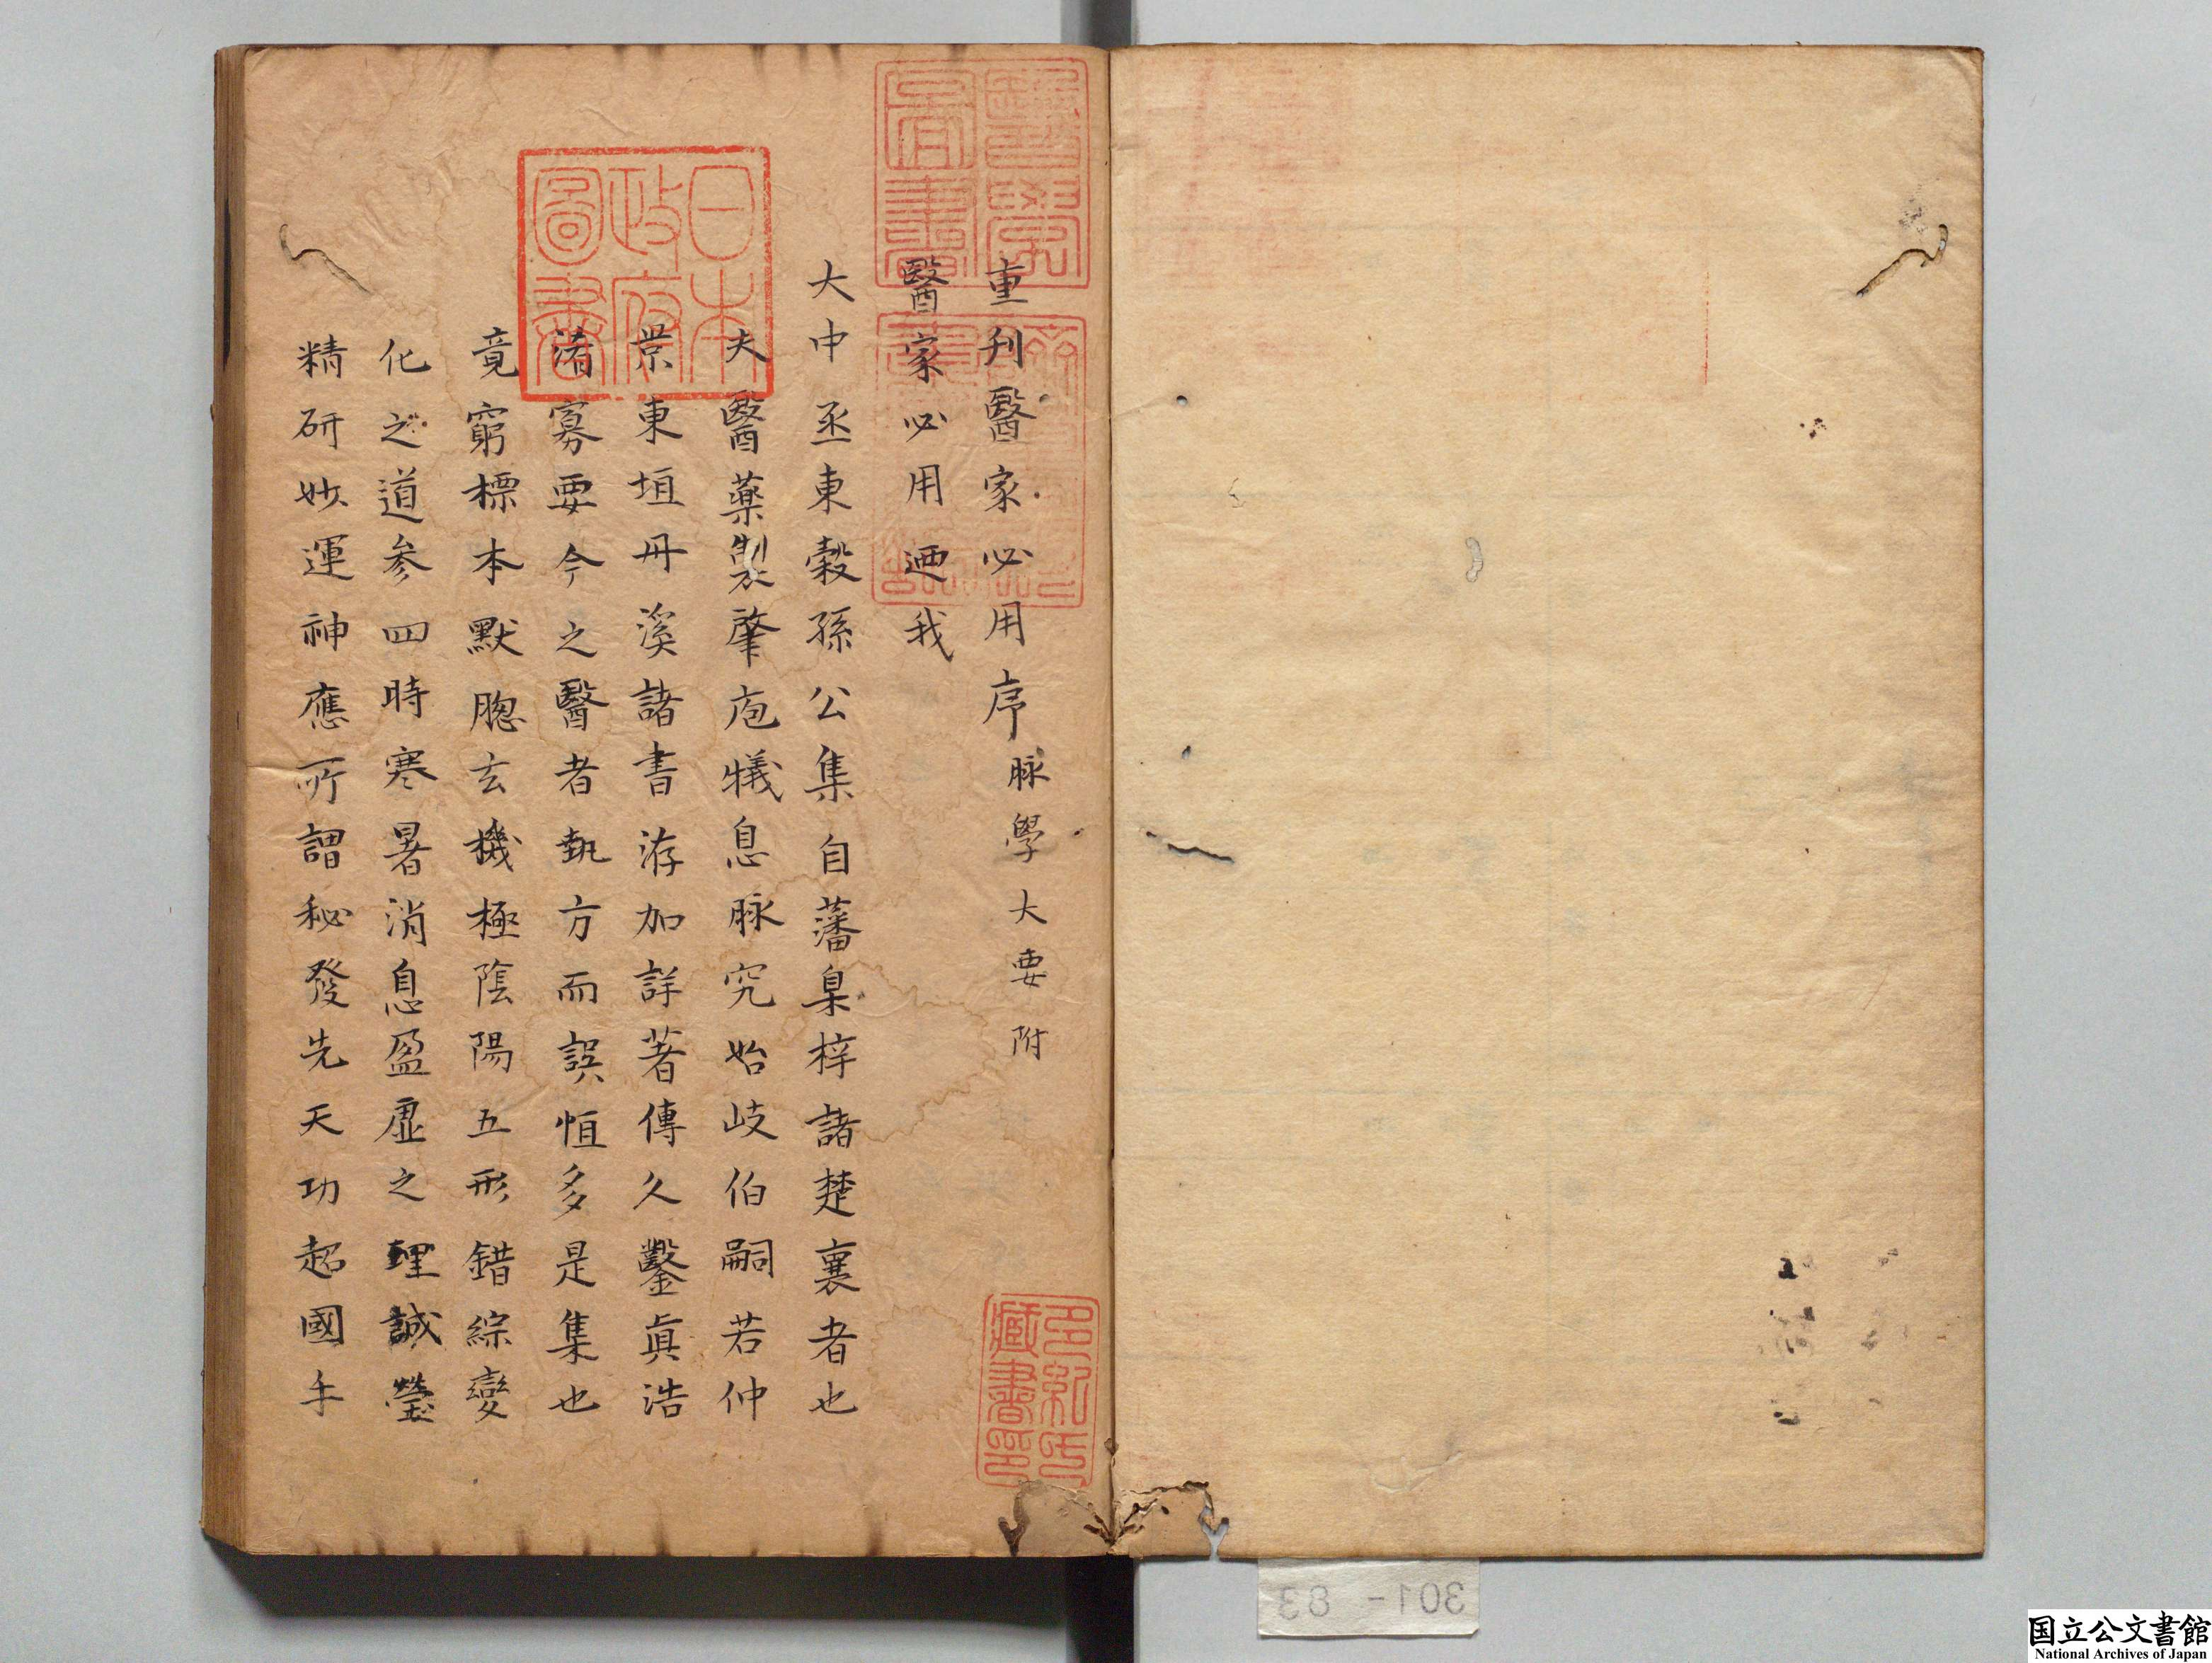 重刊醫家必用序 脉學大要附
醫家必用迺我
大中丞東穀孫公集自藩臬梓諸楚襄者也
夫醫藥製肇庖犧息脉究始岐伯嗣若仲
景東垣丹溪諸書洊加詳著傳久鑿眞浩
淆寡要今之醫者執方而誤恒多是集也
竟窮標本默朂玄機極陰陽五形錯綜變
化之道參四時寒暑消息盈虛之理誠瑩
精研妙運神應所謂秘發先天功超國手
醫學
圖書
日本
政府
圖書
多紀氏
藏書印
301-83
国立公文書館
National Archives of Japan